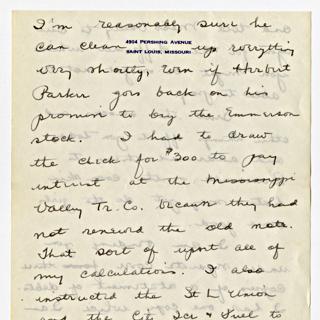 I'm reasonably sure he
4954 PERSHING AVENUE
SAINT LOUIS, MISSOURI
can clean up everything
very shortly, even if Herbert
Parker goes back on his
promise to buy the Emmerson
stock. I had to draw
the check for $300 to pay
interest at the Mississippi
Valley Tr. Co. because they had
not renewed the old note.
That sort of upset all of
my calculations. I also
instructed the St L Union
and the City Ice & Fuel to